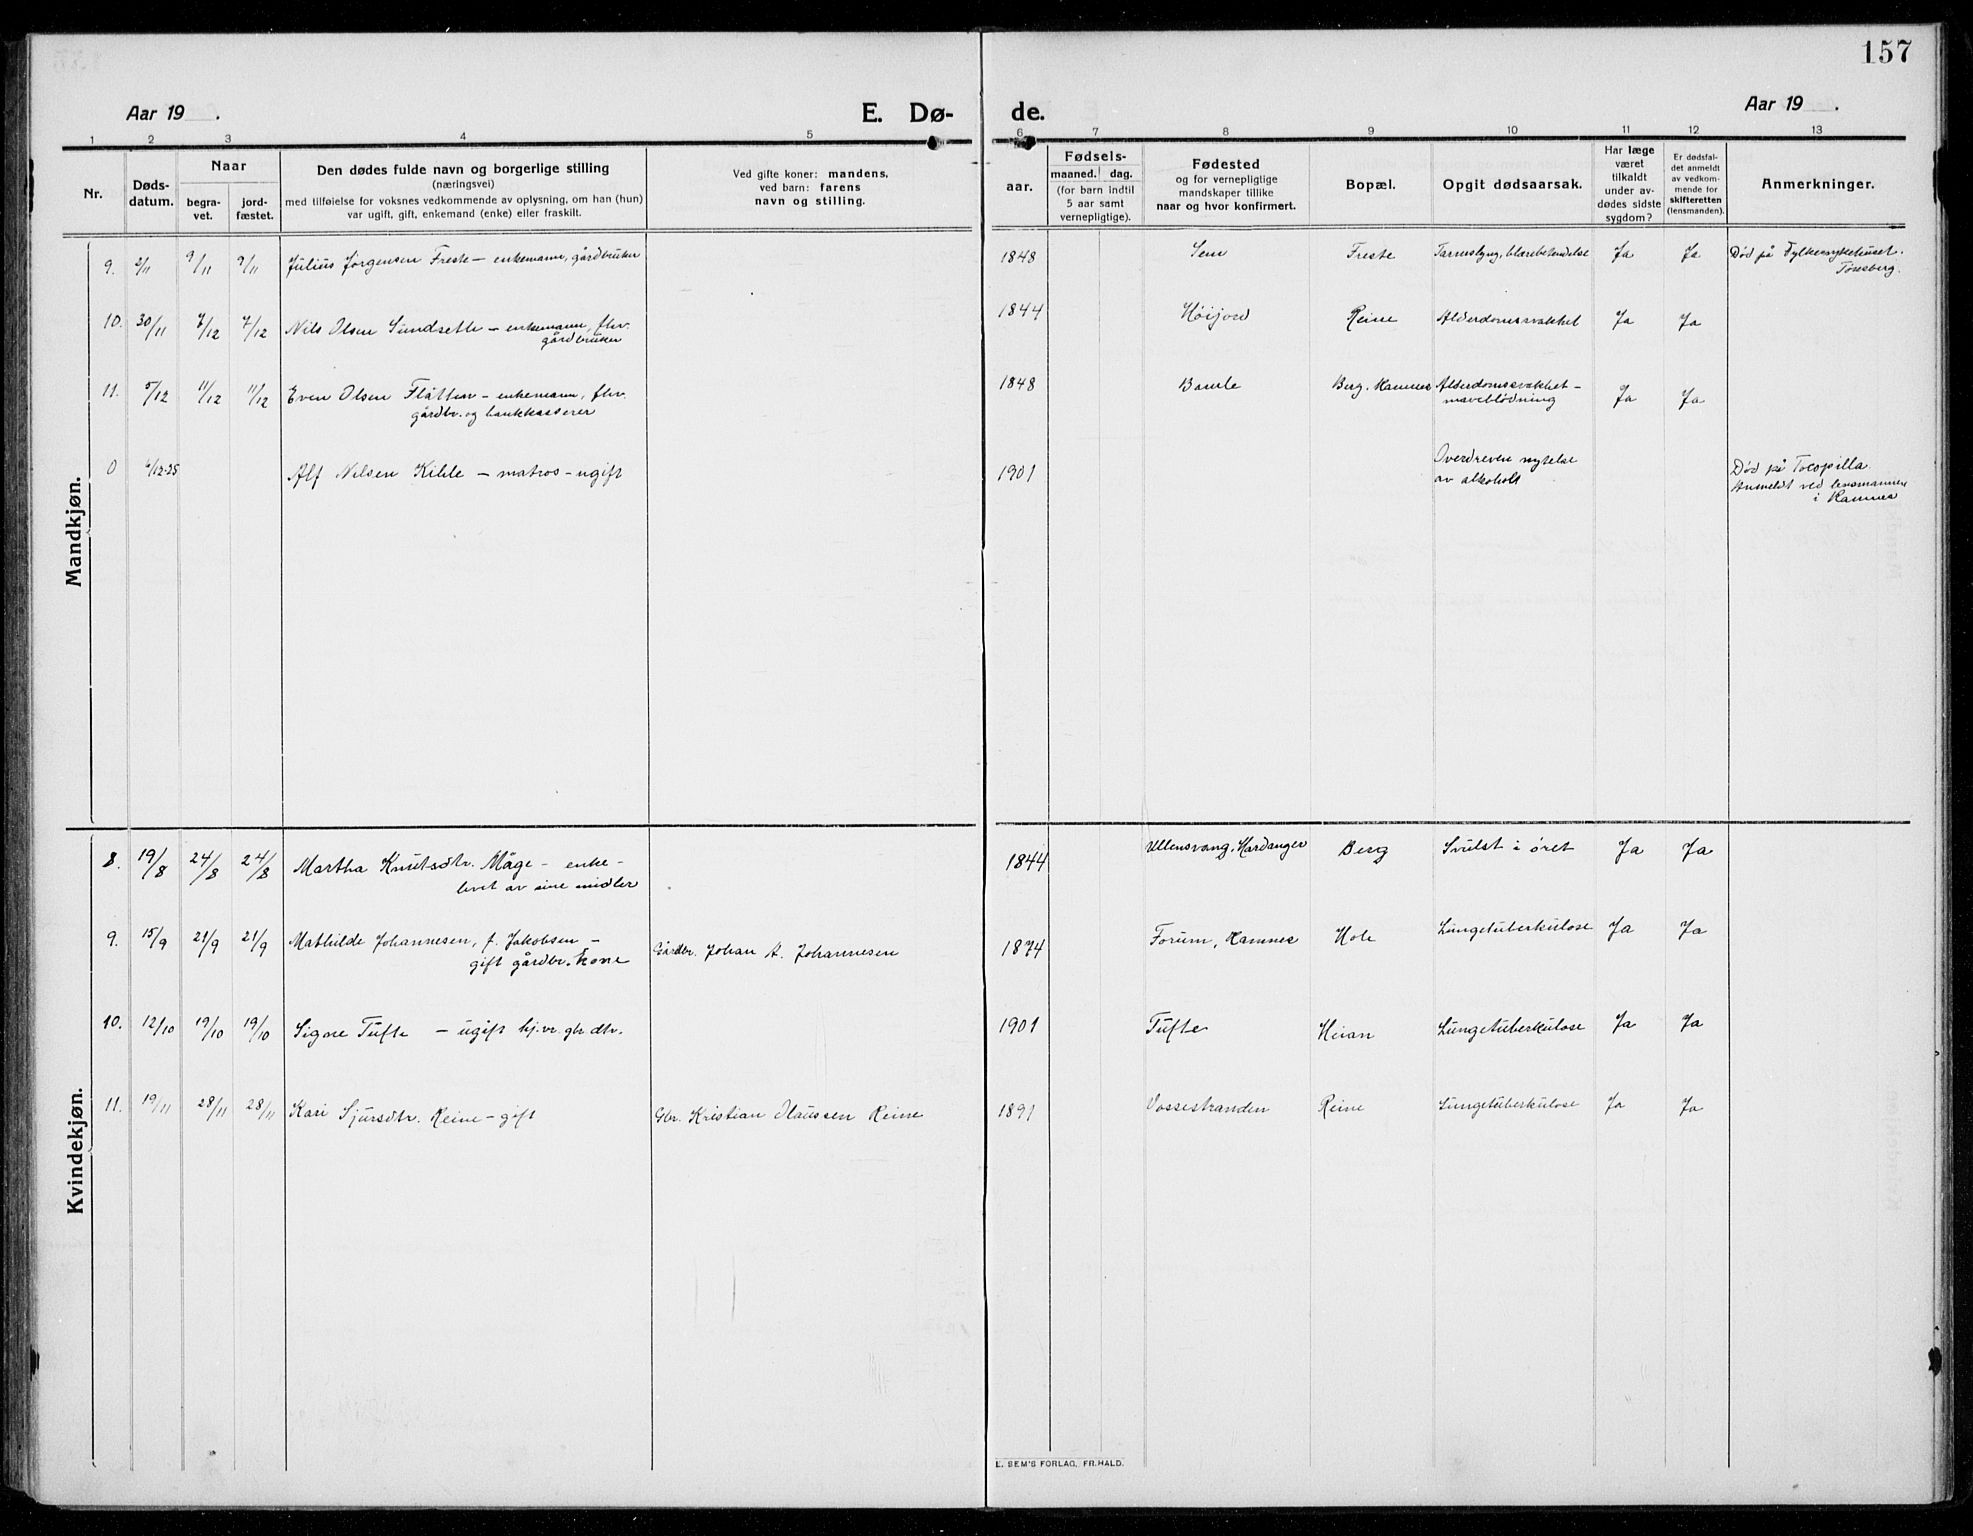 157
Aar 19 . E. Dø- de. Aar 19 .
1 2 3 4 5 6 7 8 9 10 11 12 13
Nr.
Døds-
datum.
Naar
begra-
vet.
jord-
fæstet.
Den dødes fulde navn og borgerlige stilling
(næringsvei)
med tilføielse for voksnes vedkommende av oplysning, om han (hun)
var ugift, gift, enkemand (enke) eller fraskilt.
Ved gifte koner: mandens,
ved barn: farens
navn og stilling.
Fødsels-
aar.
maaned. dag.
(for barn indtil
5 aar samt
vernepligtige).
Fødested
og for vernepligtige
mandskaper tillike
naar og hvor konfirmert.
Bopæl.
Opgit dødsaarsak.
Har læge
været
tilkaldt
under av-
dødes sidste
sygdom?
Er dødsfal-
det anmeldt
av vedkom-
mende for
skifteretten
(lensmanden).
Anmerkninger.
Mandkjøn.
9. 2/11 9/11 9/11 Julius Jørgensen Freste – enkemann, gårdbruker 1848 Sem Freste Tarmslyng, blærebetendelse Ja Ja Død på Fylkessykehuset.
Tønsberg.
10. 30/11 7/12 7/12 Nils Olsen Sundsette – enkemann, fhv. 1844 Høijord Reine Alderdomssvakhet Ja Ja
gårdbruker
11. 5/12 11/12 11/12 Even Olsen Flåtten – enkemann, fhv. 1848 Bamle Berg, Ramnes Alderdomssvakhet –
gårdbr. og bankkasserer maveblødning Ja Ja
0 6/12-25 Alf Nilsen Kihle – matros – ugift 1901 Overdreven nytelse
av alkohol Død på Tocopilla.
Anmeldt ved lensmannen
i Ramnes
Kvindekjøn.
8. 19/8 24/8 24/8 Martha Knutsdtr. Måge – enke – 1844 Ullensvang, Hardanger Berg Svulst i øret Ja Ja
levet av sine midler
9. 15/9 21/9 21/9 Mathilde Johannesen, f. Jakobsen – Gårdbr. Johan A. Johannesen 1874 Forum, Ramnes Hole Lungetuberkulose Ja Ja
gift gårdbr. kone
10. 12/10 19/10 19/10 Signe Tufte – ugift hj.vr. gbr dtr. 1901 Tufte Heian Lungetuberkulose Ja Ja
11. 19/11 28/11 28/11 Kari Sjursdtr. Reine – gift Gbr. Kristian Olaussen Reine 1891 Vossestranden Reine Lungetuberkulose Ja Ja
E. SEM'S FORLAG, FR.HALD.